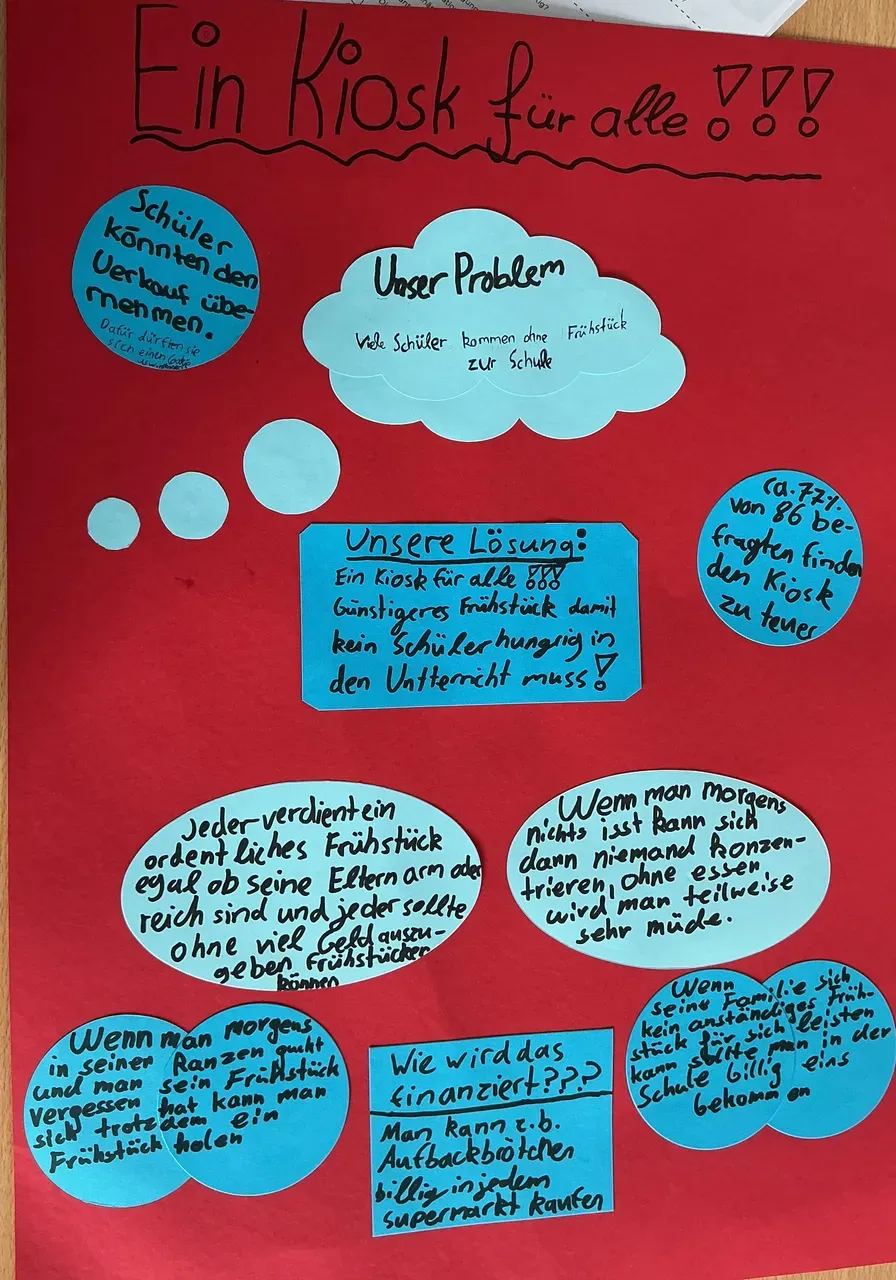 Ein Kiosk für alle !!!
Schüler
könnten den
Verkauf übe-
rnehmen.
Dafür dürften sie
sich einen
Unser Problem
Viele Schüler kommen ohne Frühstück
zur Schule
ca. 77%
von 86 be-
fragten finden
den Kiosk
zu teuer
Unsere Lösung:
Ein Kiosk für alle !!!
Günstigeres Frühstück damit
kein Schüler hungrig in
den Untterricht muss!
Jeder verdient ein
ordentliches Frühstück
egal ob seine Eltern arm oder
reich sind und jeder sollte
ohne viel Geld auszu-
geben Frühstücken
können
Wenn man morgens
nichts isst kann sich
dann niemand konzen-
trieren, ohne essen
wird man teilweise
sehr müde.
Wenn man morgens
in seinen Ranzen guckt
und man sein Frühstück
vergessen hat kann man
sich trotzdem ein
Frühstück holen
Wie wird das
finanziert???
Man kann z.b.
Aufbackbrötchen
billig in jedem
supermarkt kaufen
Wenn
seine Familie sich
kein anständiges Früh-
stück für sich leisten
kann sollte man in der
Schule billig eins
bekommen